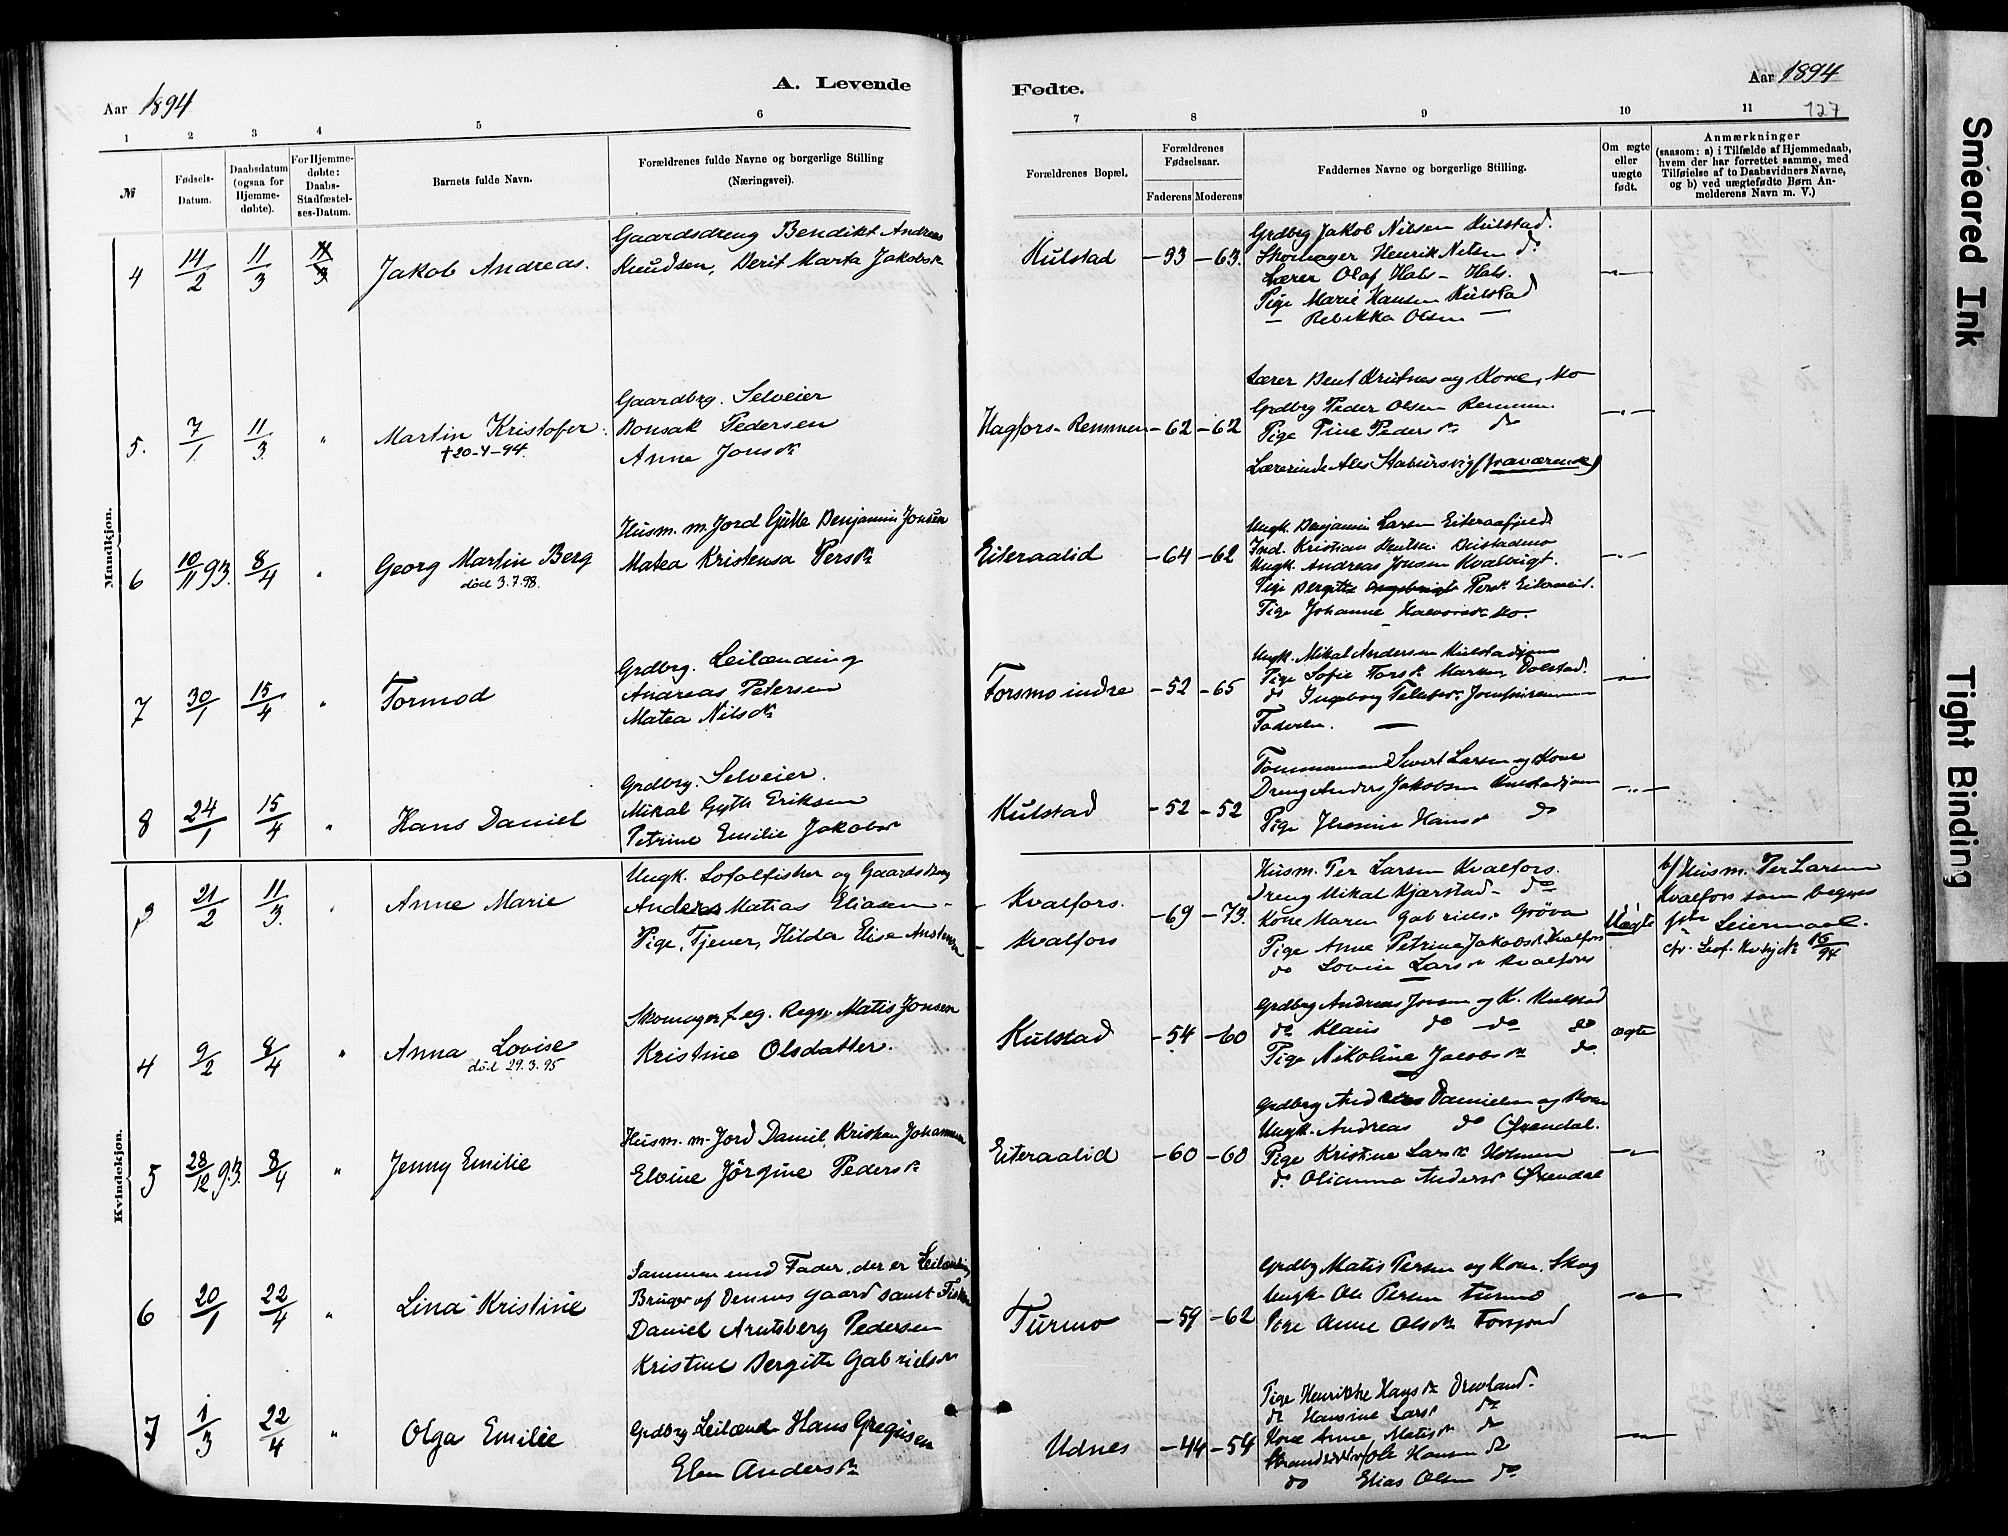 Aar 1894
A. Levende
Fødte.
Aar 1894
127
1 2 3 4 5 6 7 8 9 10 11
№
Fødsels-
Datum.
Daabsdatum
(ogsaa for
Hjemme-
døbte).
For Hjemme-
døbte:
Daabs-
Stadfæstel-
ses-Datum.
Barnets fulde Navn.
Forældrenes fulde Navne og borgerlige Stilling
(Næringsvei).
Forældrenes Bopæl.
Forældrenes
Fødselsaar.
Faderens Moderens
Faddernes Navne og borgerlige Stilling.
Om ægte
eller
uægte
født.
Anmærkninger
(saasom: a) i Tilfælde af Hjemmedaab,
hvem der har forrettet samme, med
Tilføielse af to Daabsvidners Navne,
og b) ved uægtefødte Børn An-
melderens Navn m. V.)
Mandkjøn.
4 14/2 11/3 11/3 Jakob Andreas.
Gaardsdreng Bendikt Andreas
Knudsen, Berit Marta Jakobsdr
Kulstad -93 -63.
Grdbrg Jakob Nilsen Kulstad.
Skomager Henrik Nilsen do
Lærer Olaf Hals - Hals.
Pige Marie Hansen Kulstad
— Rebekka Olsen —
-"-
5. 7/1 11/3 " Martin Kristofer.
+20-4-94.
Gaardbrg. Selveier
Bonsak Pedersen
Anne Jonsdr
Hagfors-Remmen -62 -62
Lærer Bent Krutnes og Kone, Mo
Grdbrg Peder Olsen Remmen
Pige Pine Pedersdr do
Lærerinde Ales Stabursvig (fraværende)
-"-
6 10/11 93. 8/4 " Georg Martin Berg
død 3.7.98.
Husm. m. Jord Gutte Benjamin Jonsen
Matea Kristensa Persdr
Eiteraalid -64 -62
Ungk. Benjamin Larsen Eiteraafjeld.
Ind. Kristian Bentsen
Ungk. Andreas Jonsen Kvalvigt.
Pige Bergitte Persdr Eiteraalid.
Pige Johanne Mo.
-"-
7 30/1 15/4 " Tormod
Grdbrg. Leilænding
Andreas Petersen
Matea Nilsdr
Forsmo indre -52 -65
Ungk. Mikal Andersen Kulstadsjøen
Pige Sofie Marken Dolstad.
do Ingeborg
Faderen. —
-"-
8 24/1 15/4 " Hans Daniel
Grdbrg. Selveier.
Mikal Gyth Eriksen
Petrine Emilie Jakobsdr
Kulstad -52 -52
Tømmermand Sivert Larsen og Kone
Dreng Anders Jakobsen Kulstadsjøen
Pige Hansdr do
-"-
Kvindekjøn.
3 21/2 11/3. " Anne Marie
Ungk. Lofotfisker og Gaardsdreng
Anders Matias Eliasen -
Pige, Tjener, Hilda Elise
- Kvalfors.
- Kvalfors
-69 -73.
Husm. Per Larsen Kvalfors.
Dreng Mikal Kjærstad- do
Kone Maren Gabrielsdr Grøva
Pige Anne Petrine Jakobsdr Kvalfors
do Lovise Larsdr Kvalfors
Uægte
b/Husm. Per Larsen
Kvalfors som begges
Leiermaal.
16/94
4 9/2 8/4 " Anna Lovise
død 29.3.95
Skomager Matis Jonsen
Kristine Olsdatter.
Kulstad -54 -60
Grdbrg Andreas Jonsen og K. Kulstad
do Klaus do do do
Pige Nikoline Jacobsdr do.
ægte
5 28/12 93. 8/4 " Jenny Emilie
Husm. m. Jord Daniel Kristian Johannesen
Elvine Jörgine Pedersdr
Eiteraalid -60 -60
Grdbrg Anders Danielsen og Kone
Ungk. Andreas do Øxendal.
Pige Kristine Larsdr Holmen
do. Olianna Andersdr Øxendal
-"-
6 20/1 22/4 " Lina Kristine
Sammen med Fader, der er Leilænding
Bruger af Dennes Gaard samt Fisker
Daniel Arntsberg Pedersen
Kristine Bergitte Gabrielsdr
Turmo -59 -62
Grdbrg Matis Persen og Kone. Skog
Ungk. Ole Persen Turmo
Pige Anne Olsdr
-"-
7 1/3 22/4 " Olga Emilie
Grdbrg Leilænd. Hans Gregusen
Elen Andersdr
Udnes -44 -54
Pige Henrikke Hansdr Drevland.
do Hansine Larsdr do
Kone Anne Matisdr do
Strandsidder Ole Hansen do
do Elias Olsen do
-"-
Smeared Ink
Tight Binding